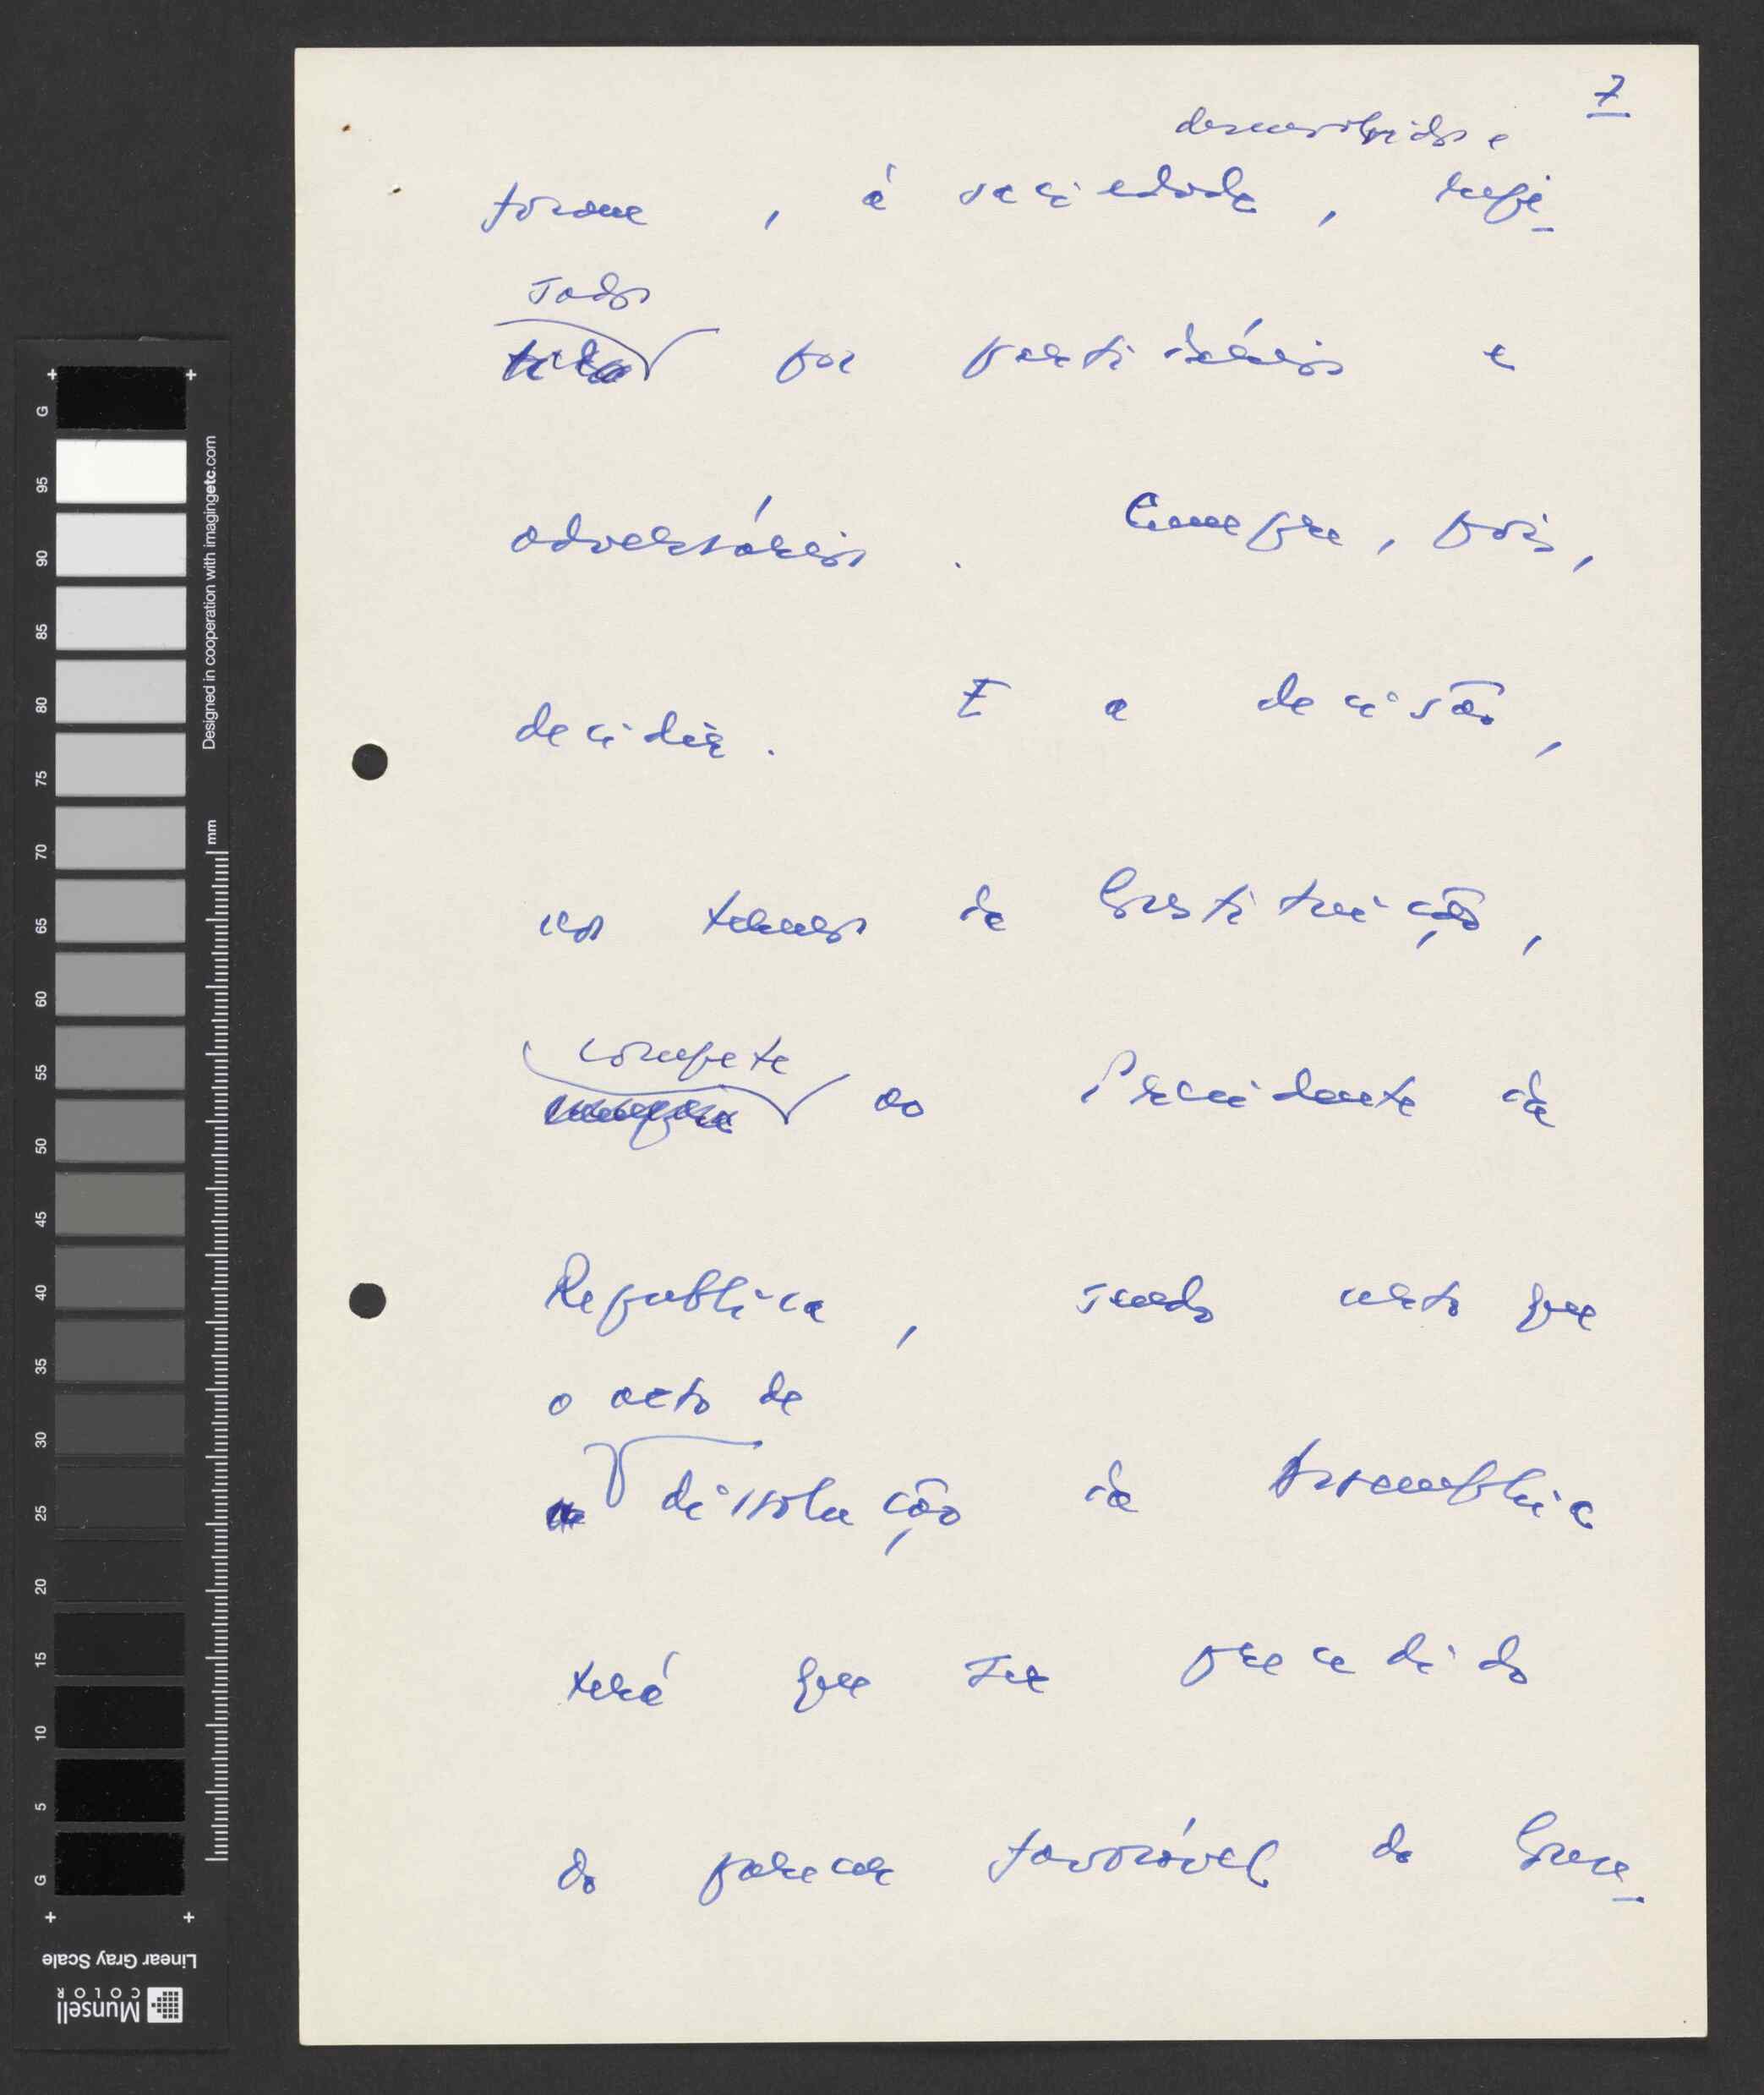 7
desenvolvidos e
forem, à saciedade, repi-
sados
por partidários e
adversários. Cumpre, pois,
decidir. E a decisão,
nos termos da Constituição,
compete
cumpre ao Presidente da
Republica, sendo certo que
o acto de
a dissolução da Assembleia
terá que ser precedido
do parecer favorável do Conse-
G
95
90
85
80
75
70
65
60
55
50
45
40
35
30
25
20
15
10
5
G
Designed in cooperation with imagingetc.com
mm
Linear Gray Scale
Munsell
COLOR